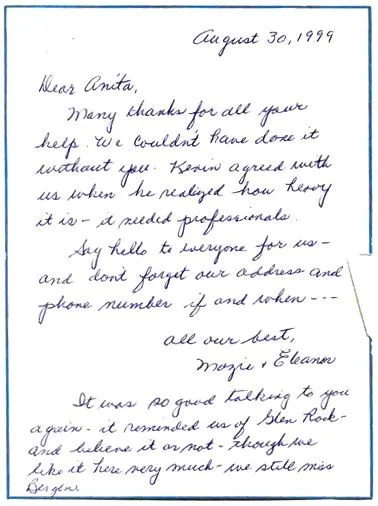 August 30, 1999
Dear Anita,
Many thanks for all your
help. We couldn't have done it
without you. Kevin agreed with
us when he realized how heavy
it is - it needed professionals.
Say hello to everyone for us -
and don't forget our address and
phone number if and when ---
all our best,
Mozie + Eleanor
It was so good talking to you
again - it reminded us of Glen Rock -
and believe it or not - though we
like it here very much - we still miss
Bergen.